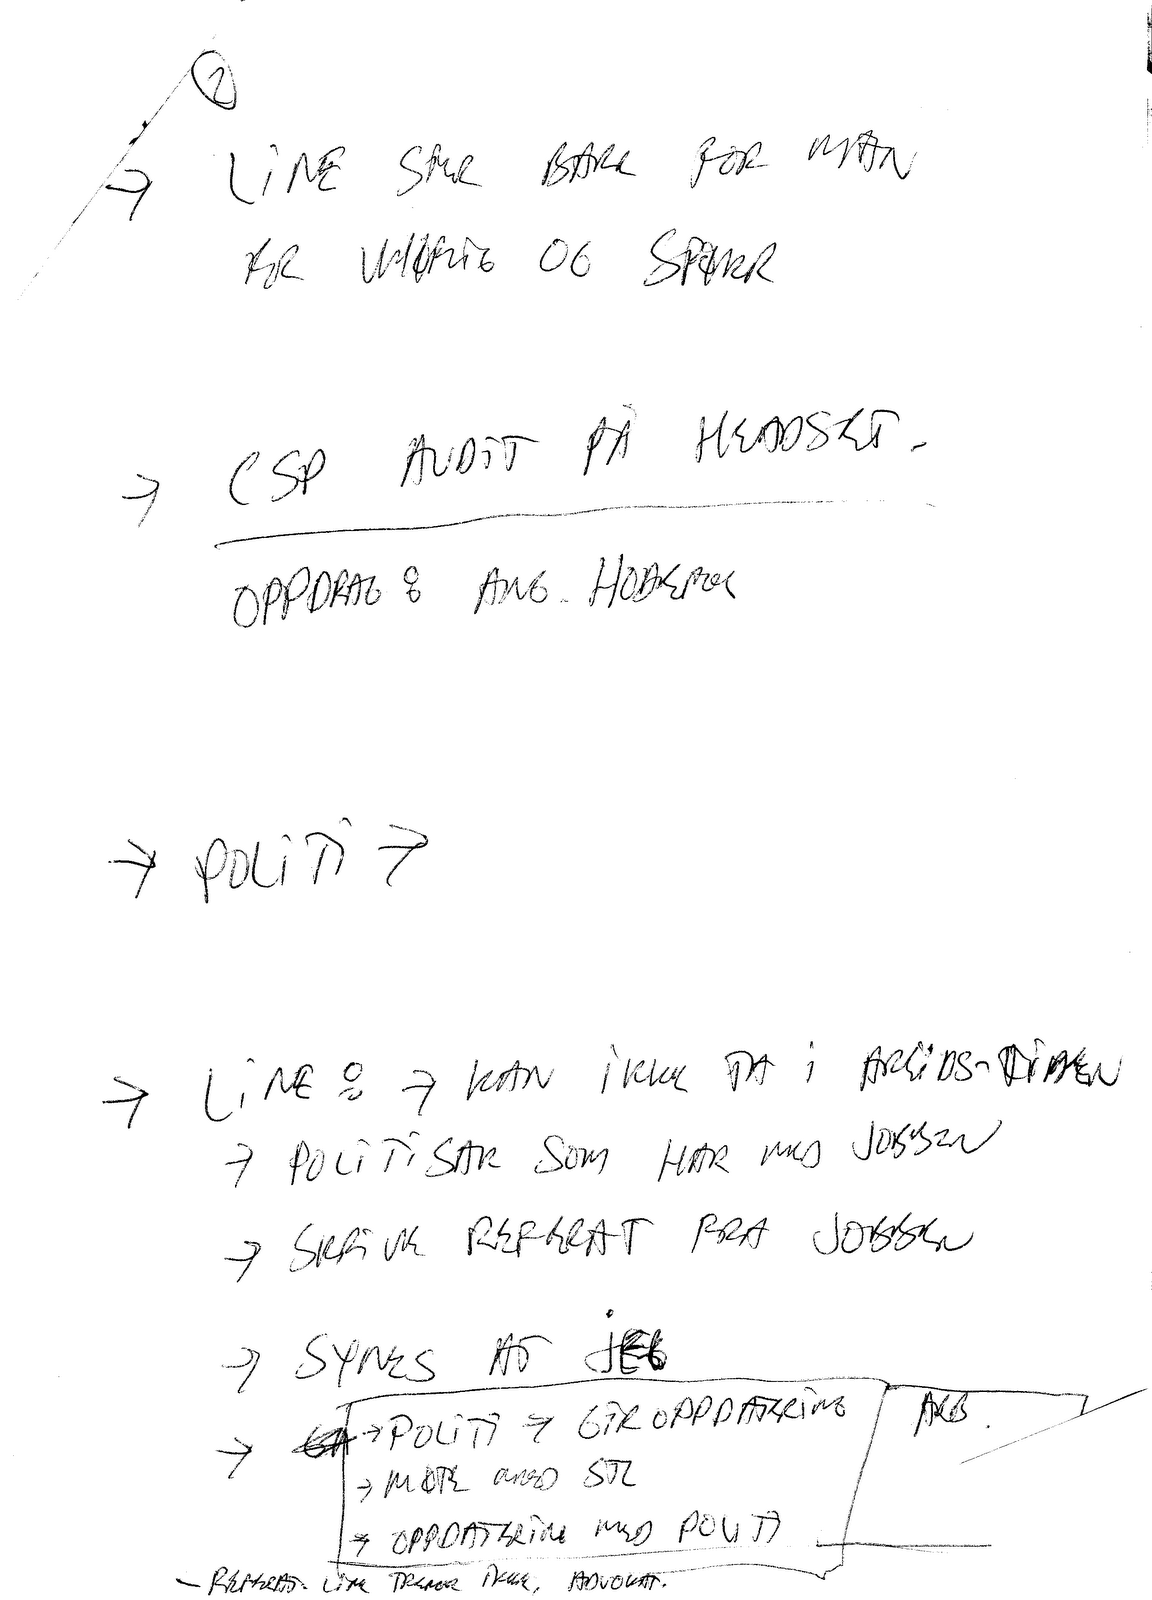 2
→ LINE SIER BARE FOR MAN
ER UHØFLIG OG SPØKER
→ CSP AUDIT PÅ HEADSET.
OPPDRAG: ANG.
→ POLITI →
→ LINE: → KAN IKKE TA I ARBEIDS-TIDEN
→ POLITISAK SOM HAR MED JOBBEN
→ SKRIVE REFERAT FRA JOBBEN
→ SYNES AT JEG
→ → POLITI → GIR OPPDATERING ARB.
→ MØTE MED STL
→ OPPDATERING MED POLITI
- REFERAT. LINE TRENGER IKKE, ADVOKAT.